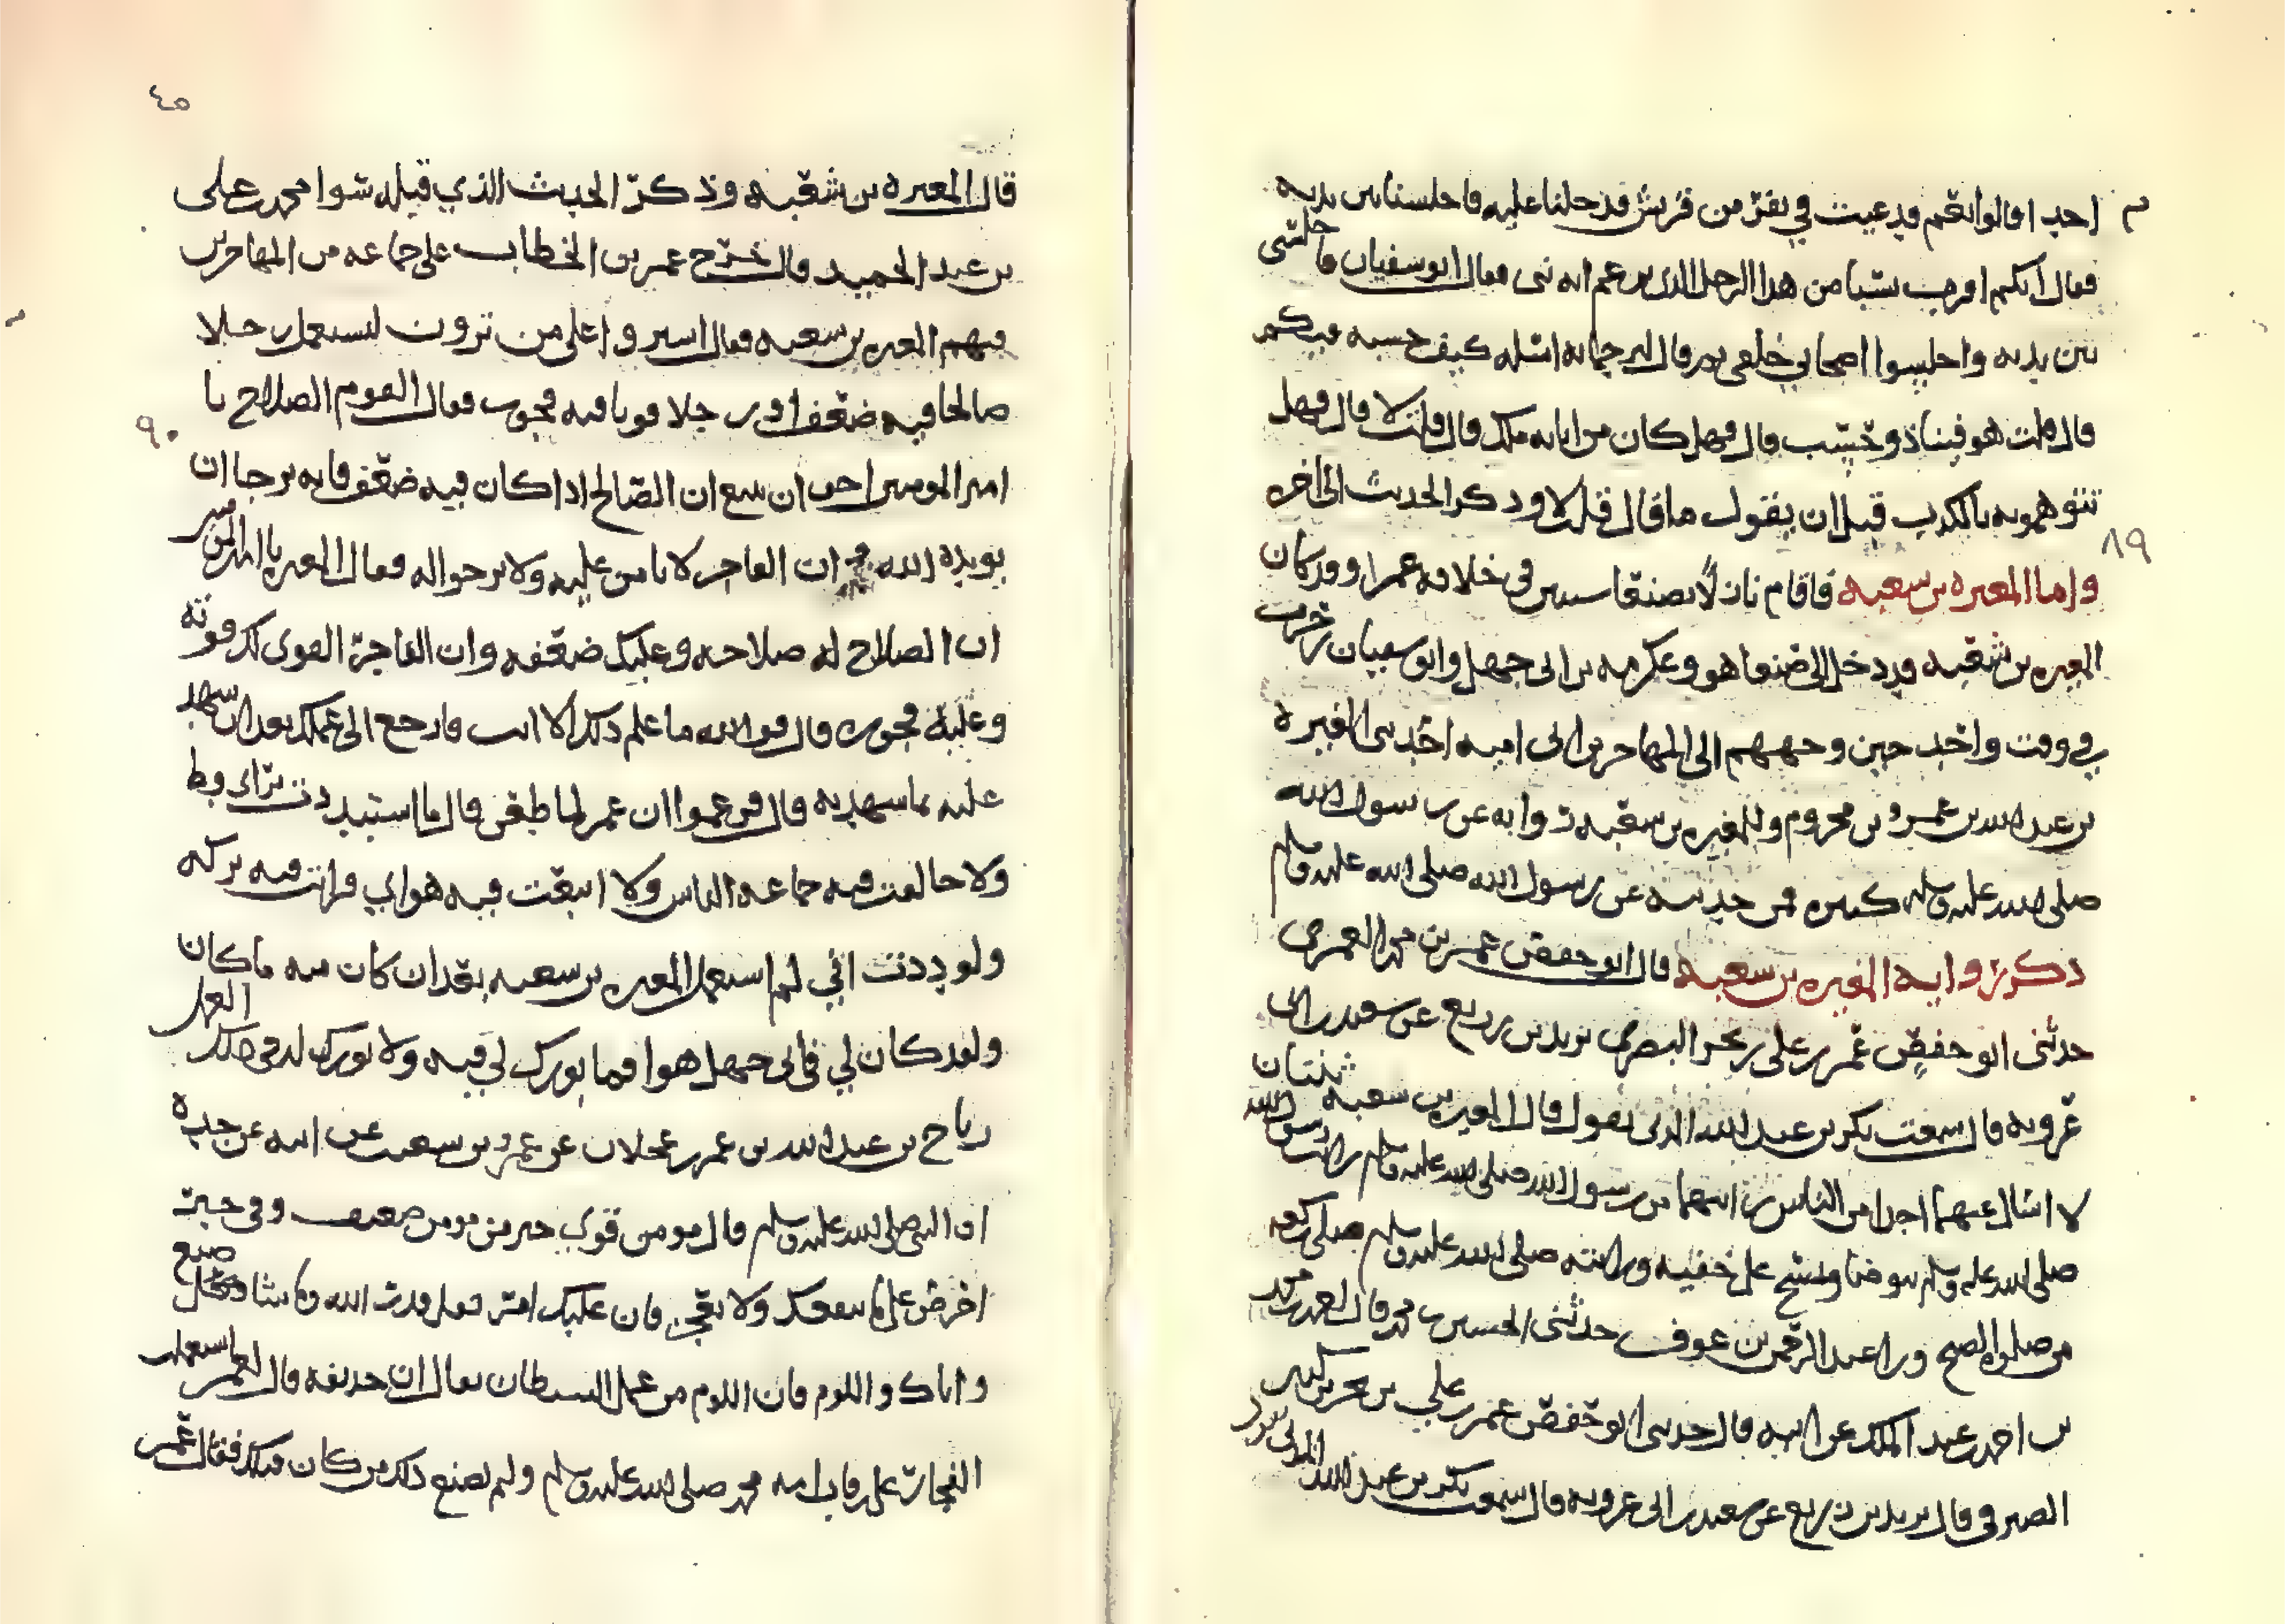 احد اقالوا نعم فدعيت في نفر من قريش فدخلنا عليه فاجلسنا بين يديه
فقال ايكم اقرب نسبا من هذا الرجل الذي يزعم انه نبي فقال ابو سفيان فاجلسني
بين يديه واجلسوا اصحابي خلفي ثم قال لترجمانه اسله كيف حسبه فيكم
قال قلت هو فينا ذو حسب قال فهل كان من ابايه ملك قال قلت لا قال فهل
تتهمونه بالكذب قبل ان يقول ما قال قلت لا وذكر الحديث الى اخره
٨٩
واما المغيره بن شعبه فاقام نازلا بصنعا سنين في خلافه عمر وقد كان
المغيره بن شعبه قد دخل الى صنعا هو وعكرمه بن ابي جهل وابو سفيان بن حرب
في وقت واحد حين وجههم الى المهاجر بن ابي اميه اخذ بني المغيره
بن عبد الله بن عمرو بن مخزوم وللمغيره بن شعبه روايه عن رسول الله
صلى الله عليه وسلم كثيره فمن حديثه عن رسول الله صلى الله عليه وسلم
ذكر روايه المغيره بن شعبه قال ابو حفص عمر بن محمد العمري
حدثني ابو حفص عمر بن علي بن بحر البصري يزيد بن زريع عن سعيد بن ابي
عروبه قال سمعت بكر بن عبد الله المزني يقول قال المغيره بن شعبه ثنتان
لا اسال عنهما احدا من الناس رايتهما من رسول الله صلى الله عليه وسلم رايت رسول الله
صلى الله عليه وسلم توضا ومسح على خفيه ورايته صلى الله عليه وسلم صلى ركعه
من صلوه الصبح ورا عبد الرحمن بن عوف حدثني الحسين بن محمد قال احمد بن محمد
بن احمد بن عبد الملك عن ابيه قال حدثني ابو حفص عمر بن علي بن بحر بن كثير
الصيرفي قال يزيد بن زريع عن سعيد بن ابي عروبه قال سمعت بكر بن عبد الله المزني
٤٥
قال المغيره بن شعبه وذكر الحديث الذي قبله سوا محمد بن علي
بن عبد الحميد قال خرج عمر بن الخطاب على جماعه من المهاجرين
فيهم المغيره بن شعبه فقال اشيروا علي من ترون نستعمل رجلا
صالحا فيه ضعف او رجلا قويا فيه فجور فقال القوم الصلاح يا
٩٠
امير المومنين احب ان الصالح اذا كان فيه ضعف فانه يرجا ان
يويده الله وان الفاجر لا يامن عليه ولا يرجوا له فقال المغيره يا امير المومنين
ان الصلاح له صلاحه وعليك ضعفه وان الفاجر القوي لك قوته
وعليه فجوره قال فوالله ما علم ذلك الا انت فارجع الى عملك بعد ان شهد
عليه بما شهد به قال فزعموا ان عمر لما طعن قال ما استبددت براي قط
ولا خالفت فيه جماعه الناس ولا اتبعت فيه هواي فرايت فيه بركه
ولوددت اني لم استعمل المغيره بن شعبه بعد ان كان منه ما كان
ولقد كان لي في ابي جهل هوا فما بورك لي فيه ولا بورك له في ذلك العمل
رباح بن عبد الله بن عمر بن عجلان عن عمرو بن سعيب عن ابيه عن جده
ان النبي صلى الله عليه وسلم قال مومن قوي خير من مومن ضعيف وفي خير
احرص على ما ينفعك ولا تعجز فان عليك امر فقل قدر الله وما شا صنع
واياك واللوم فان اللوم من عمل الشيطان يقال ان حذيفه قال لعمر استعملت
الفجار على رقاب امه محمد صلى الله عليه وسلم ولم يصنع ذلك من كان قبلك فقال عمر